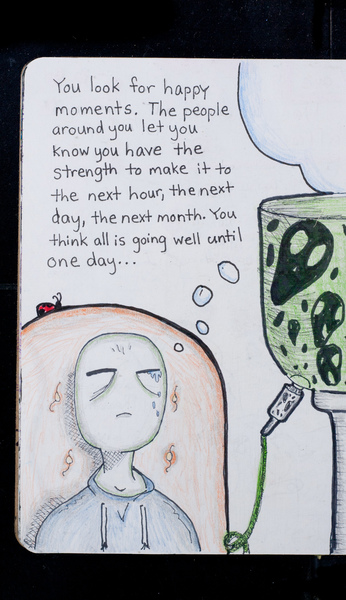 You look for happy
moments. The people
around you let you
know you have the
strength to make it to
the next hour, the next
day, the next month. You
think all is going well until
one day...